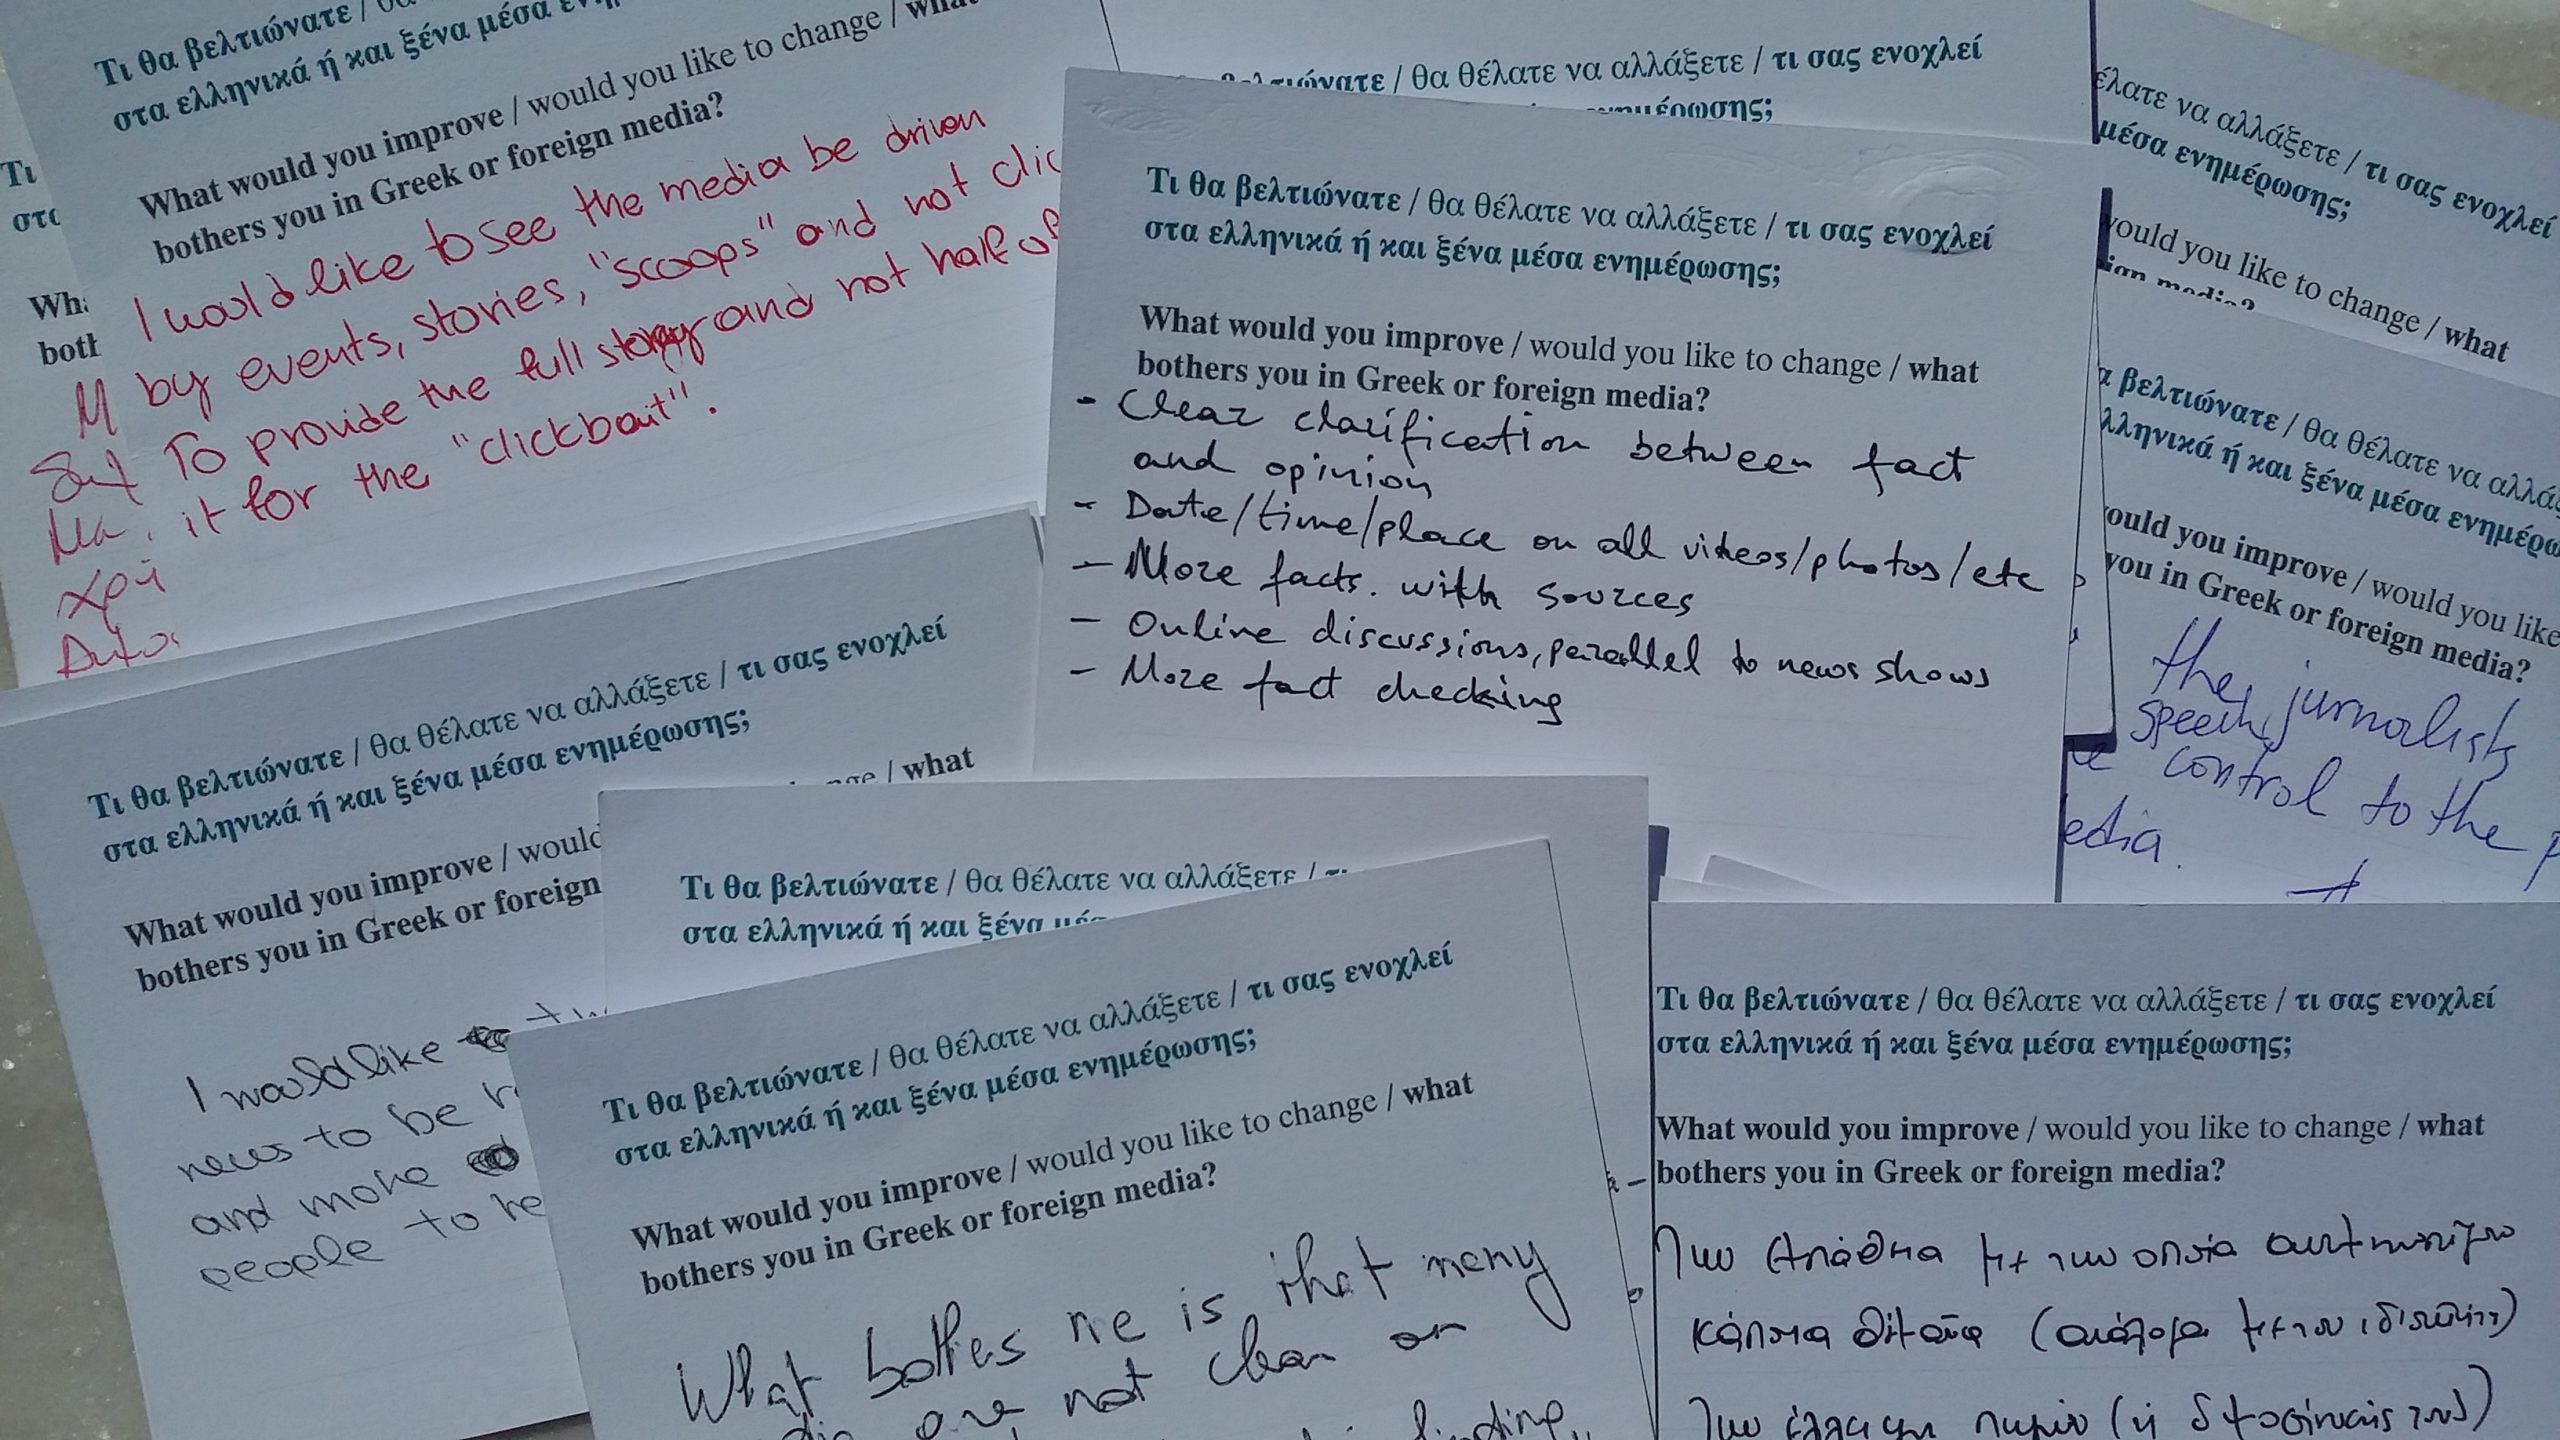 Τι θα βελτιώνατε /
στα ελληνικά ή και ξένα μέσα
What would you improve / would you like to change / what
bothers you in Greek or foreign media?
I would like to see the media be driven
by events, stories, "scoops" and not clic
To provide the full story and not half of
it for the "clickbait".
Τι
στα
Wh
both
βελτιώνατε / θα θέλατε να αλλάξετε / τι σας ενοχλεί
ενημέρωσης;
Τι θα βελτιώνατε / θα θέλατε να αλλάξετε / τι σας ενοχλεί
στα ελληνικά ή και ξένα μέσα ενημέρωσης;
What would you improve / would you like to change / what
bothers you in Greek or foreign media?
- Clear clarification between fact
and opinion
- Date/time/place on all videos/photos/etc
- More facts. with sources
- Online discussions, parallel to news shows
- More fact checking
έλατε να αλλάξετε / τι σας ενοχλεί
μέσα ενημέρωσης;
would you like to change / what
media?
α βελτιώνατε / θα θέλατε να αλλά
λληνικά ή και ξένα μέσα ενημέρω
ould you improve / would you like
you in Greek or foreign media?
the jurnalists
speech,
control to the p
edia.
Τι θα βελτιώνατε / θα θέλατε να αλλάξετε / τι σας ενοχλεί
στα ελληνικά ή και ξένα μέσα ενημέρωσης;
nge / what
What would you improve / would
bothers you in Greek or foreign
I would like
news to be
and more
people to re
Τι θα βελτιώνατε / θα θέλατε να αλλάξετε /
στα ελληνικά ή και ξένα
Τι θα βελτιώνατε / θα θέλατε να αλλάξετε / τι σας ενοχλεί
στα ελληνικά ή και ξένα μέσα ενημέρωσης;
What would you improve / would you like to change / what
bothers you in Greek or foreign media?
What bothes me is that many
are not clear on
Τι θα βελτιώνατε / θα θέλατε να αλλάξετε / τι σας ενοχλεί
στα ελληνικά ή και ξένα μέσα ενημέρωσης;
What would you improve / would you like to change / what
bothers you in Greek or foreign media?
Την απάθεια με την οποία
κάποια θέματα (ανάλογα με τον ιδιοκτήτη)
Την έλλειψη